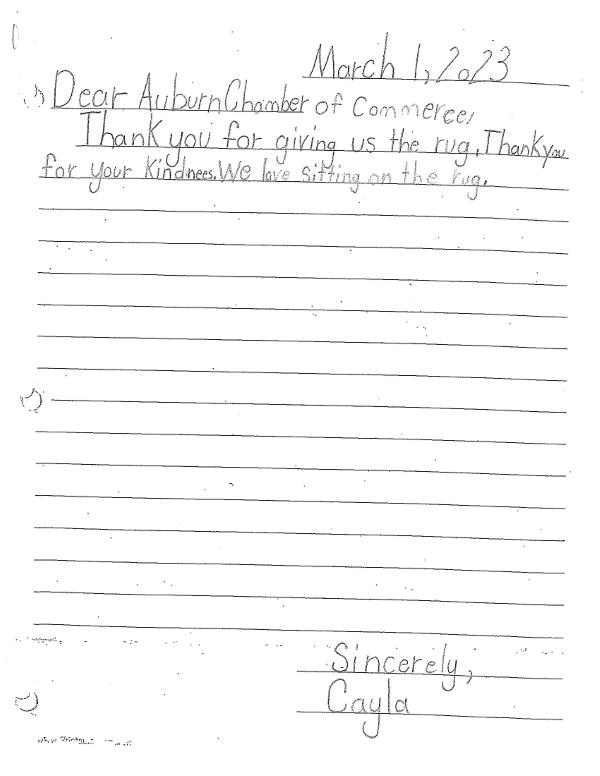 March 1, 2023
Dear Auburn Chamber of Commerce,
Thank you for giving us the rug. Thank you
for your kindnees. We love sitting on the rug.
Sincerely,
Cayla